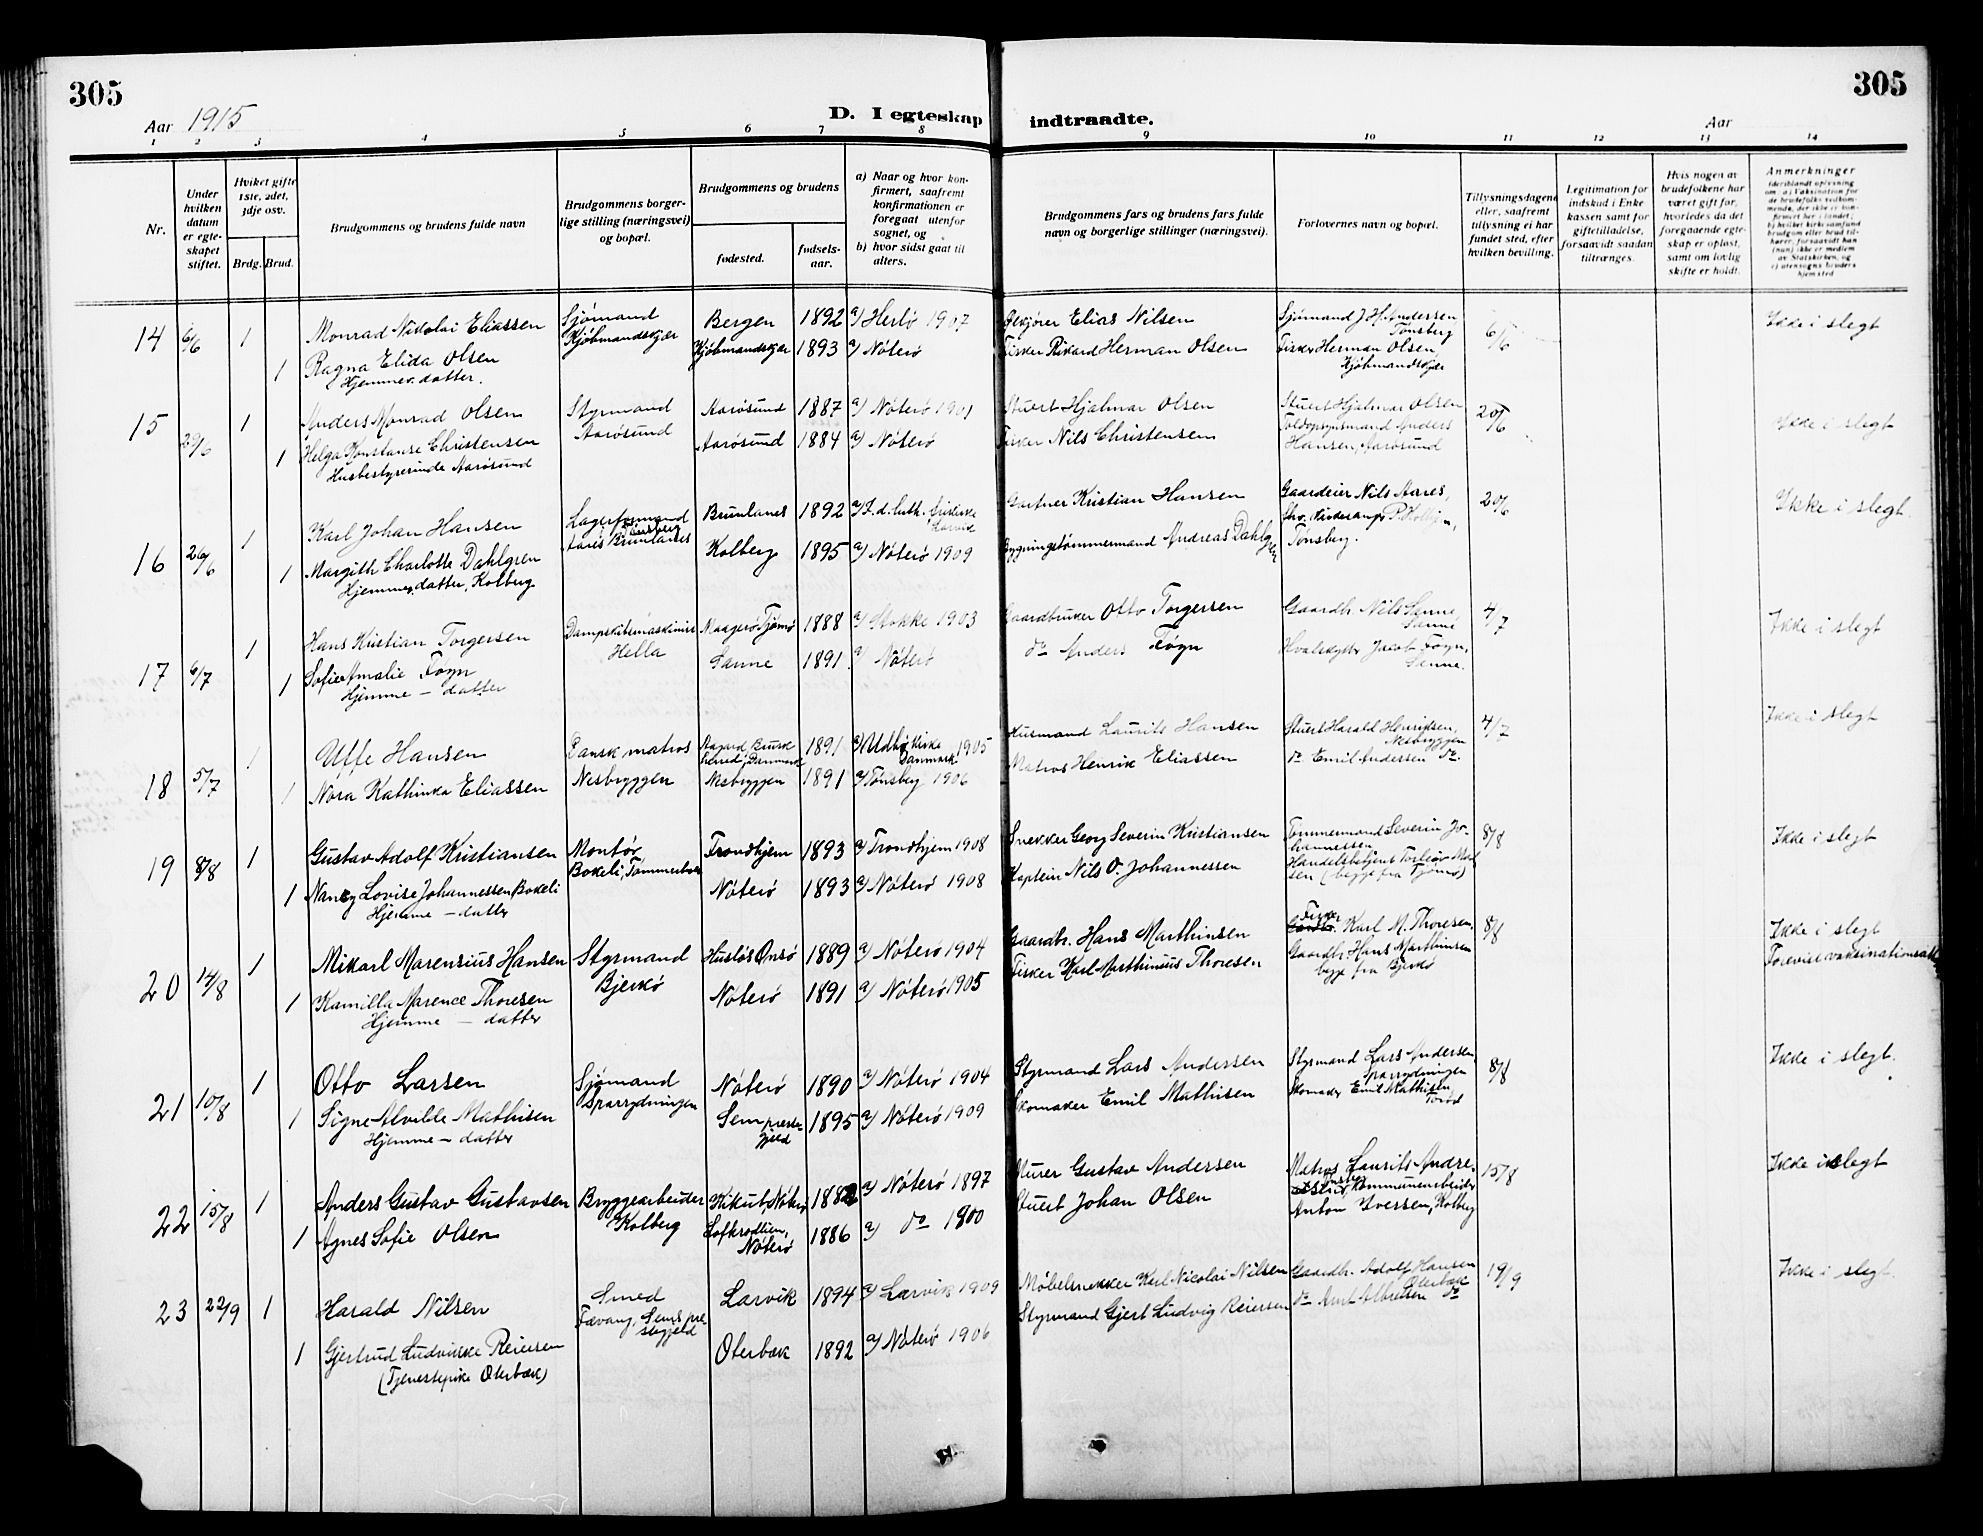 305
305
Aar 1915
D. I egteskap indtraadte.
Aar
1 2 3 4 5 6 7 8 9 10 11 12 13 14
Nr.
Under hvilken datum er egteskapet stiftet.
Hvilket gifte 1ste, 2det, 3dje osv.
Brdg. Brud.
Brudgommens og brudens fulde navn
Brudgommens borgerlige stilling (næringsvei) og bopæl.
Brudgommens og brudens
fødested.
fødselsaar.
a) Naar og hvor konfirmert, saafremt konfirmationen er foregaat utenfor sognet, og
b) hvor sidst gaat til alters.
Brudgommens fars og brudens fars fulde navn og borgerlige stillinger (næringsvei).
Forlovernes navn og bopæl.
Tillysningsdagene eller, saafremt tillysning ei har fundet sted, efter hvilken bevilling.
Legitimation for indskud i Enkekassen samt for giftetilladelse, forsaavidt saadan tiltrænges.
Hvis nogen av brudefolkene har været gift før, hvorledes da det foregaaende egteskap er opløst, samt om lovlig skifte er holdt.
Anmerkninger
14 6/6 1 Monrad Nikolai Eliassen Sjømand Kjøbmandskjær Bergen 1892 a) Herlø 1907 Elias Nilsen Sjømand J H Andersen Tønsberg 6/6 Ikke i slegt
1 Ragna Elida Olsen Kjøbmandskjær 1893 a) Nøterø Fisker Rikard Herman Olsen Fisker Herman Olsen, Kjøbmandskjær
Hjemmev. datter.
15 20/6 1 Anders Monrad Olsen Styrmand Aarøsund Aarøsund 1887 a) Nøterø 1901 Stuert Hjalmar Olsen Stuert Hjalmar Olsen 20/6 Ikke i slegt
1 Helga Konstanse Christensen Aarøsund 1884 a) Nøterø Fisker Nils Christensen Toldopsynsmand Anders Hansen, Aarøsund
Husbestyrerinde Aarøsund
16 26/6 1 Karl Johan Hansen Lagerformand Brunlanes 1892 Gartner Kristian Hansen Gaardeier Nils Aares, 20/6 Ikke i slegt.
1 Margith Charlotte Dahlgren Kolberg 1895 a) Nøterø 1909 Bygningstømmermand Andreas Dahlgren Tønsberg.
Hjemmev. datter, Kolberg
17 6/7 1 Hans Kristian Torgersen Dampskibsmaskinist Hella Maagerø Tjømø 1888 a) Stokke 1903 Gaardbruker Otto Torgersen Gaardbr. Nils Sanne, Sanne 4/7 Ikke i slegt
1 Sofie Amalie Føyn Sanne 1891 a) Nøterø do Anders Føyn Hvalskytter Jacob Føyn, Sanne.
Hjemme – datter
18 5/7 1 Uffe Hansen Dansk matros Nesbryggen 1891 Danmark 1905 Husmand Laurits Hansen Stuert Harald Henriksen, Nesbryggen 4/7 Ikke i slegt
1 Nora Kathinka Eliassen Nesbryggen 1891 a) Tønsberg 1906 Matros Henrik Eliassen do Emil Andersen do.
19 8/8 1 Gustav Adolf Kristiansen Montør Bokeli, Trondhjem 1893 a) Trondhjem 1908 Snekker Georg Severin Kristiansen Tømmermand Severin Johannessen 8/8 Ikke i slegt
1 Nancy Lovise Johannessen Bokeli Nøterø 1893 a) Nøterø 1908 Kaptein Nils O. Johannessen Handelsbetjent (begge fra Tjømø)
Hjemme – datter
20 14/8 1 Mikael Marensius Hansen Styrmand Bjerkø Husløs Onsø 1889 a) Nøterø 1904 Gaardbr. Hans Marthinsen Fisker Karl M. Thoresen, 8/8 Ikke i slegt
1 Kamilla Marence Thoresen Nøterø 1891 a) Nøterø 1905 Fisker Karl Marthinius Thoresen Gaardbr. Hans Marthinsen begge fra Bjerkø Forevist vaksinationsatt
Hjemme – datter
21 10/8 1 Otto Larsen Sjømand Sparrydningen Nøterø 1890 a) Nøterø 1904 Styrmand Lars Andersen Styrmand Lars Andersen Sparrydningen 8/8 Ikke i slegt.
1 Signe Alvilde Mathisen Sem prestegjeld 1895 a) Nøterø 1909 Skomaker Emil Mathisen Skomaker Emil Mathisen, Torød
Hjemme – datter
22 15/8 1 Anders Gustav Gustavsen Bryggearbeider Kolberg Kikut, Nøterø 1882 a) Nøterø 1897 Murer Gustav Andersen Matros Laurits Andre. 15/8 Ikke i slegt
1 Agnes Sofie Olsen Nøterø 1886 a) do 1900 Stuert Johan Olsen Kommunearbeider Anton Iversen, Kolberg
23 22/9 1 Harald Nilsen Smed Fævang, Sems prestegjeld Larvik 1894 a) Larvik 1909 Møbelsnekker Karl Nicolai Nilsen Gaardbr. Adolf Hansen Oterbæk 19/9 Ikke i slegt
1 Gjertrud Ludvikke Reiersen Oterbæk 1892 a) Nøterø 1906 Styrmand Gjert Ludvig Reiersen
(Tjenestepike Oterbæk)